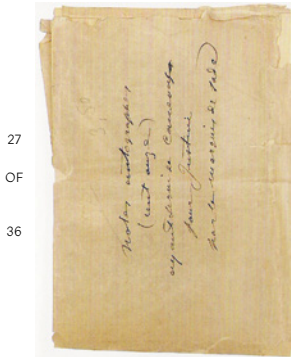 27
OF
36
Notes autographes
(cent onze)
ayant servi de canevas
pour Justine
par le marquis de Sade